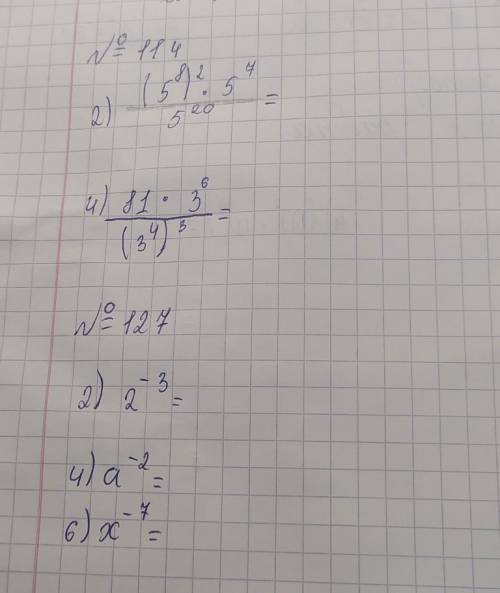 № 114
2) (5⁸)² · 5⁷ / 5²⁰ =
4) 81 · 3⁶ / (3⁴)³ =
№ 127
2) 2⁻³ =
4) a⁻² =
6) x⁻⁷ =